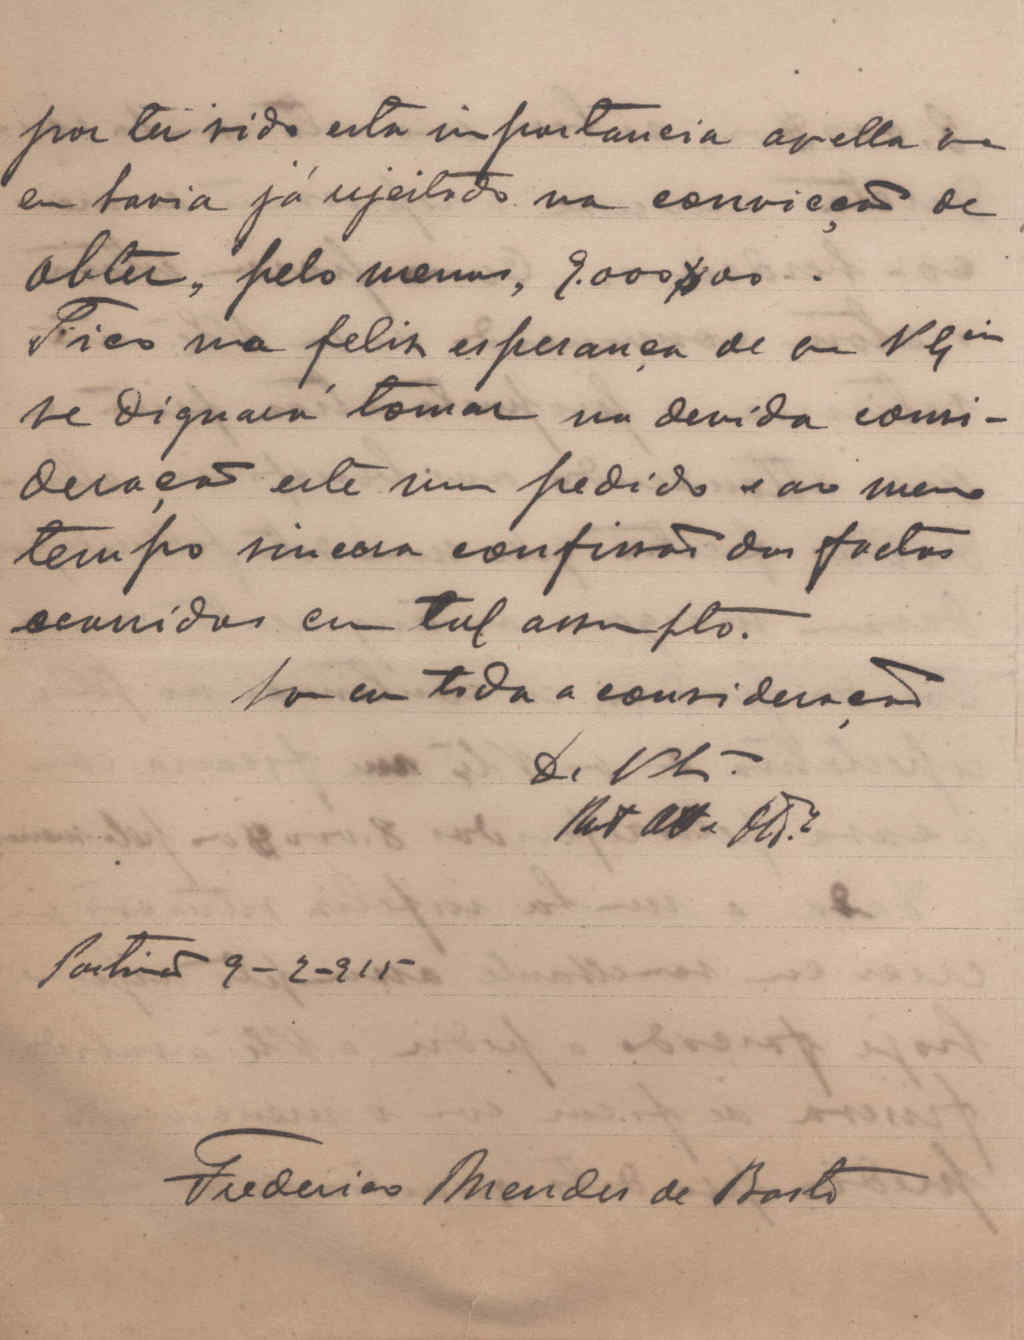 por ter sido esta importancia aquella que
eu havia já rejeitado na convicção de
obter, pelo menos, 9.000$00.
Fico na feliz esperança de que V Ex
se dignará tomar na devida consi-
deração este meu pedido e ao mesmo
tempo sincera confissão dos factos
ocorridos em tal assumpto.
Sou com toda a consideração
De V Ex
Att
Portimão 9-2-915
Frederico Mendes de Basto